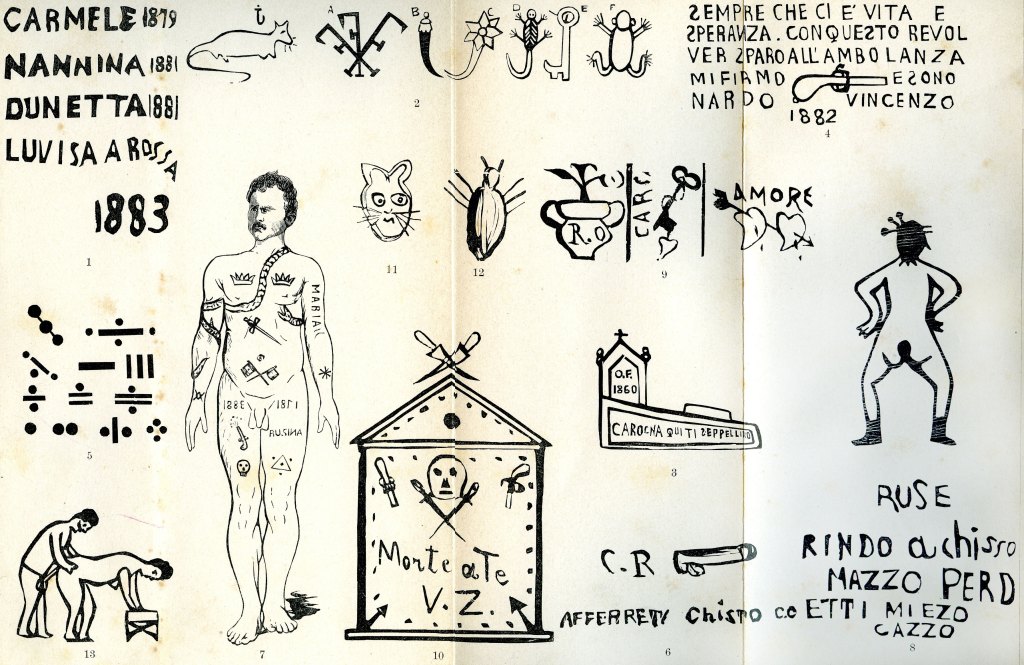 CARMELE 1879
NANNINA 1881
DUNETTA 1881
LUVISA A ROSSA
1883
1
A B C D E F
2
SEMPRE CHE CI E' VITA E
SPERANZA. CONQUESTO REVOL
VER SPARO ALL'AMBOLANZA
MIFIRMO E SONO
NARDO VINCENZO
1882
4
11
12
R.O
CARO
9
AMORE
MARIA
1883 1871
RUSINA
7
5
13
Morte a Te
V. Z.
10
O.F.
1860
CAROGNA QUI TI SEPPELLIRO
3
C.R
AFFERRETV Chisto
6
RUSE
RINDO a chisso
MAZZO PERD
ce ETTI MIEZO
CAZZO
8